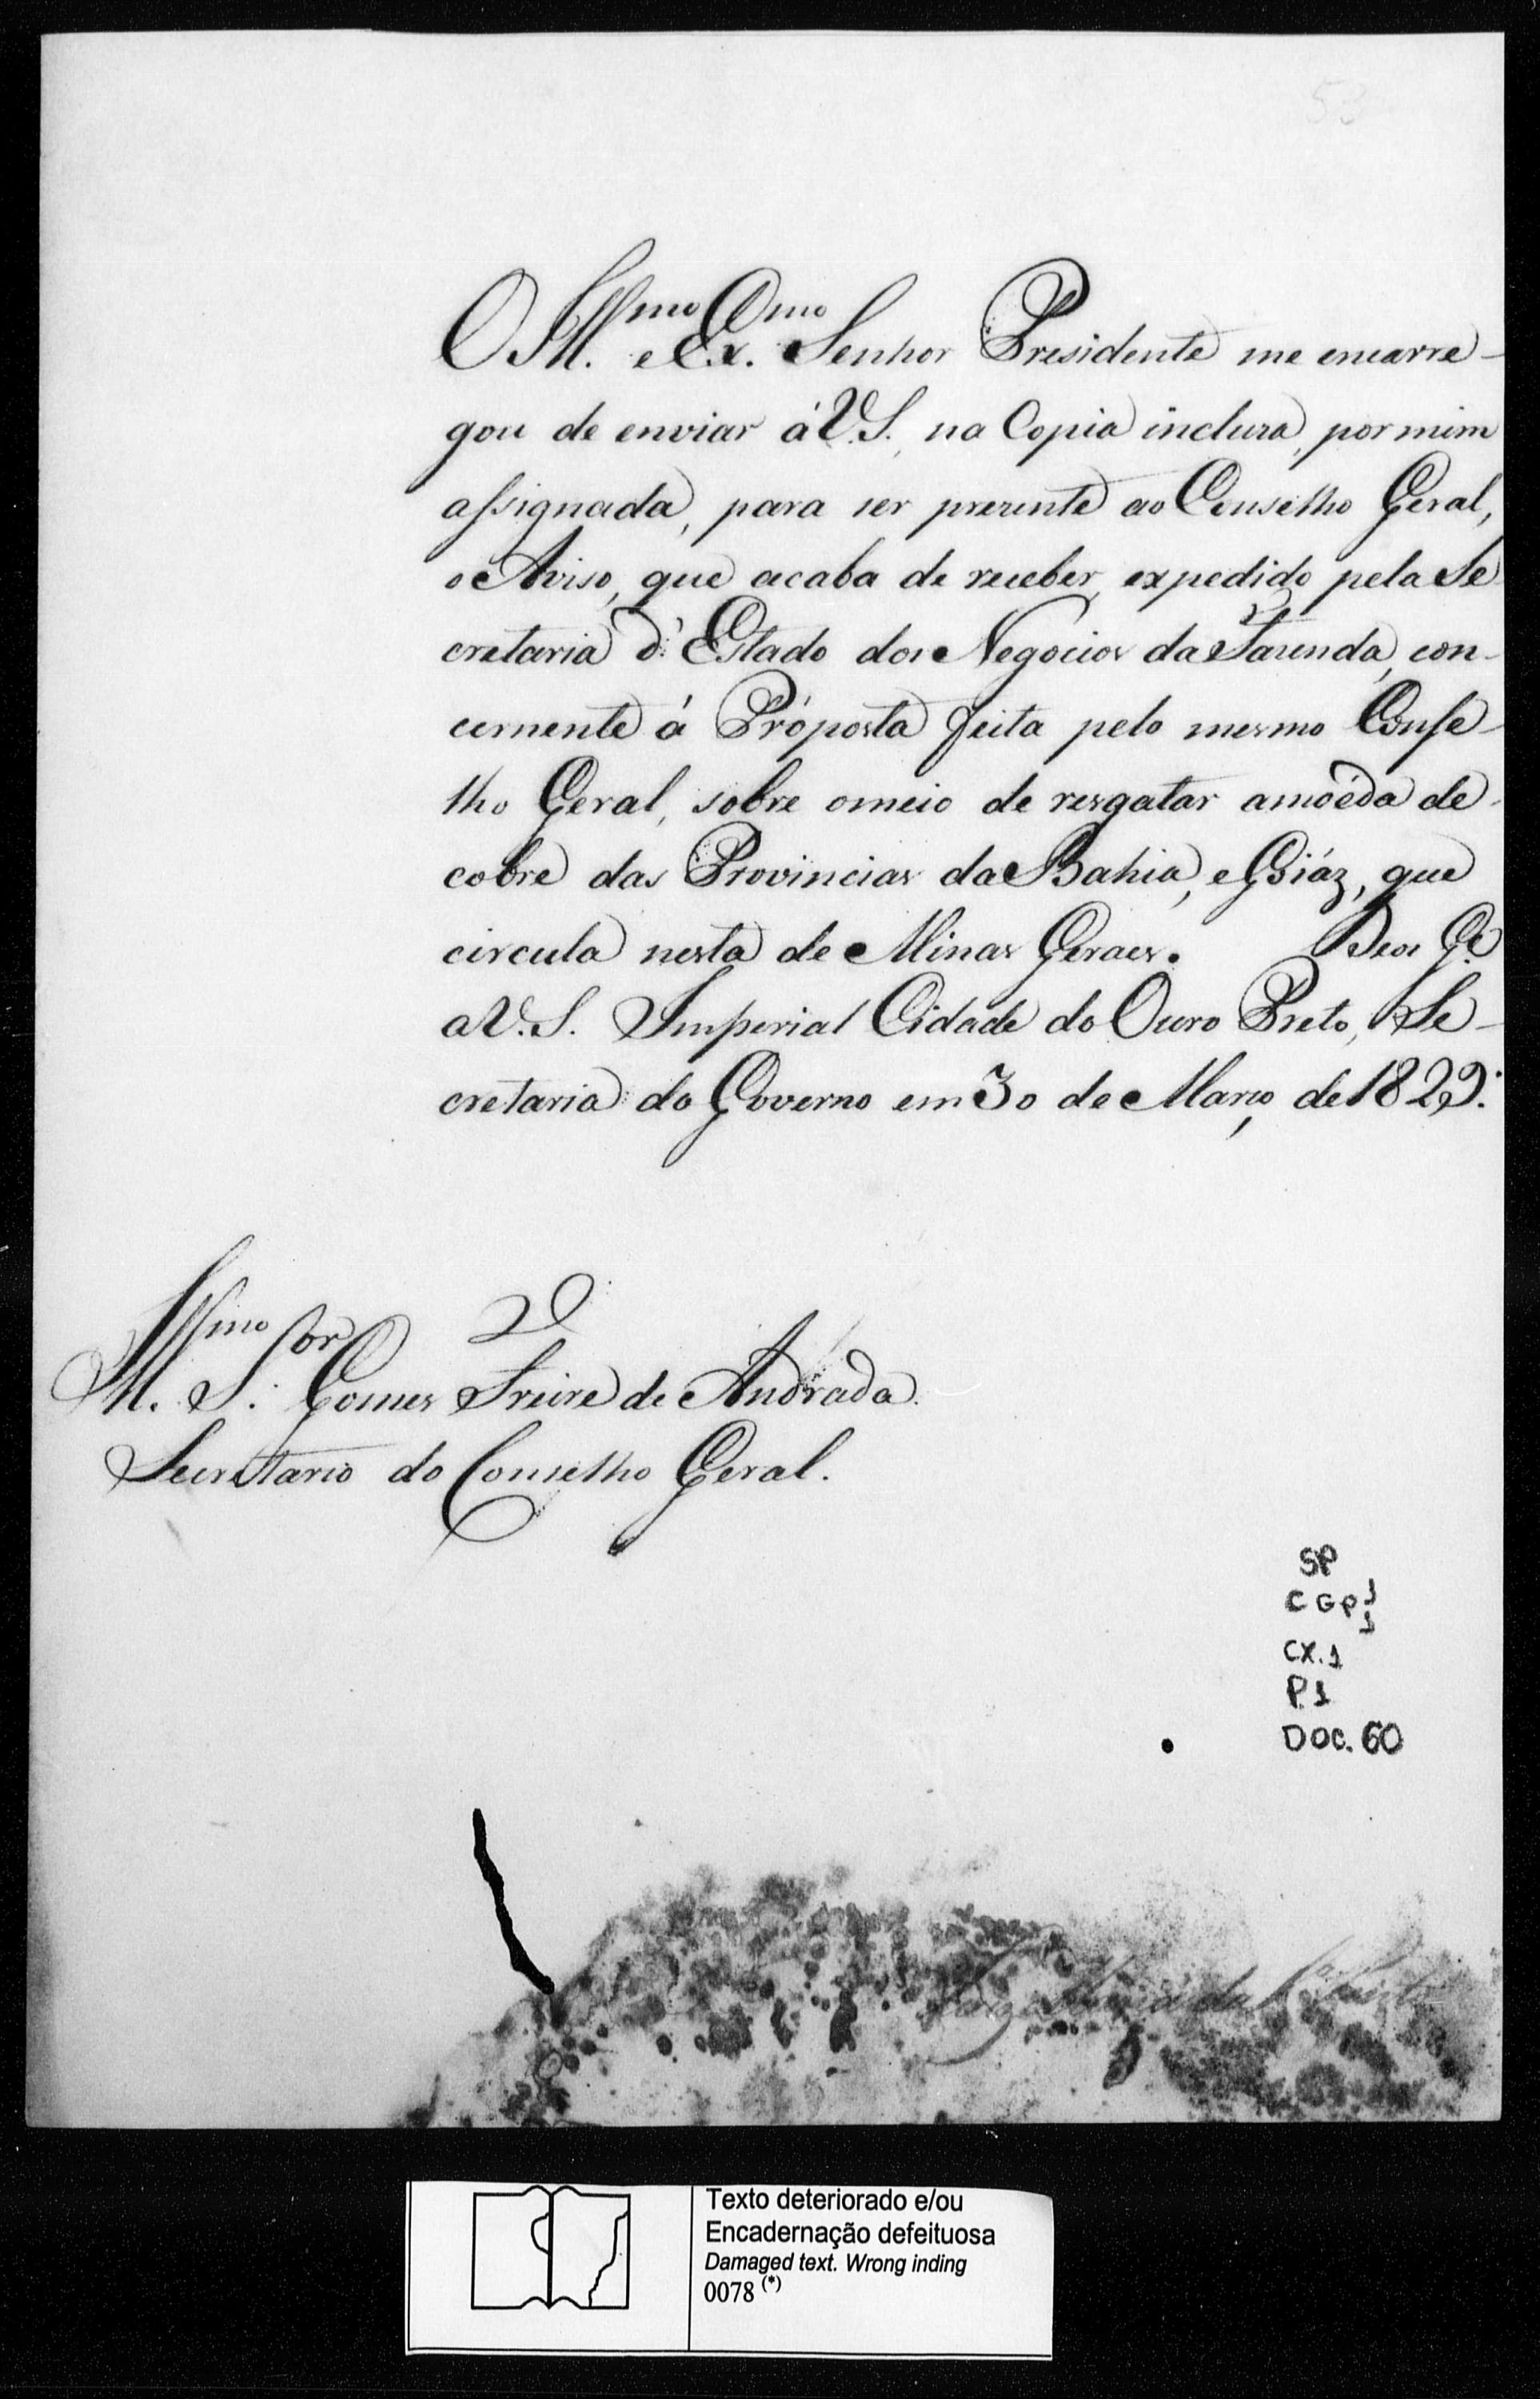 53
O Ill.mo e Ex.mo Senhor Presidente me encarre-
gou de enviar á V.S., na Copia incluza, por mim
assignada, para ser prezente ao Conselho Geral,
o Aviso, que acaba de receber, expedido pela Se
cretaria d'Estado dos Negocios da Fazenda, con-
cernente á Próposta feita pelo mesmo Conse-
lho Geral, sobre o meio de resgatar a moéda de
cobre das Provincias da Bahia, e Goiáz, que
circula nesta de Minas Geraes. Deos G.e
a V.S. Imperial Cidade do Ouro Preto, Se-
cretaria do Governo em 30 de Março de 1829.
Ill.mo S.or Gomes Freire de Andrada.
Secretario do Conselho Geral.
SP
CGP1
CX.1
P.1
DOC.60
Texto deteriorado e/ou
Encadernação defeituosa
Damaged text. Wrong inding
0078 (*)